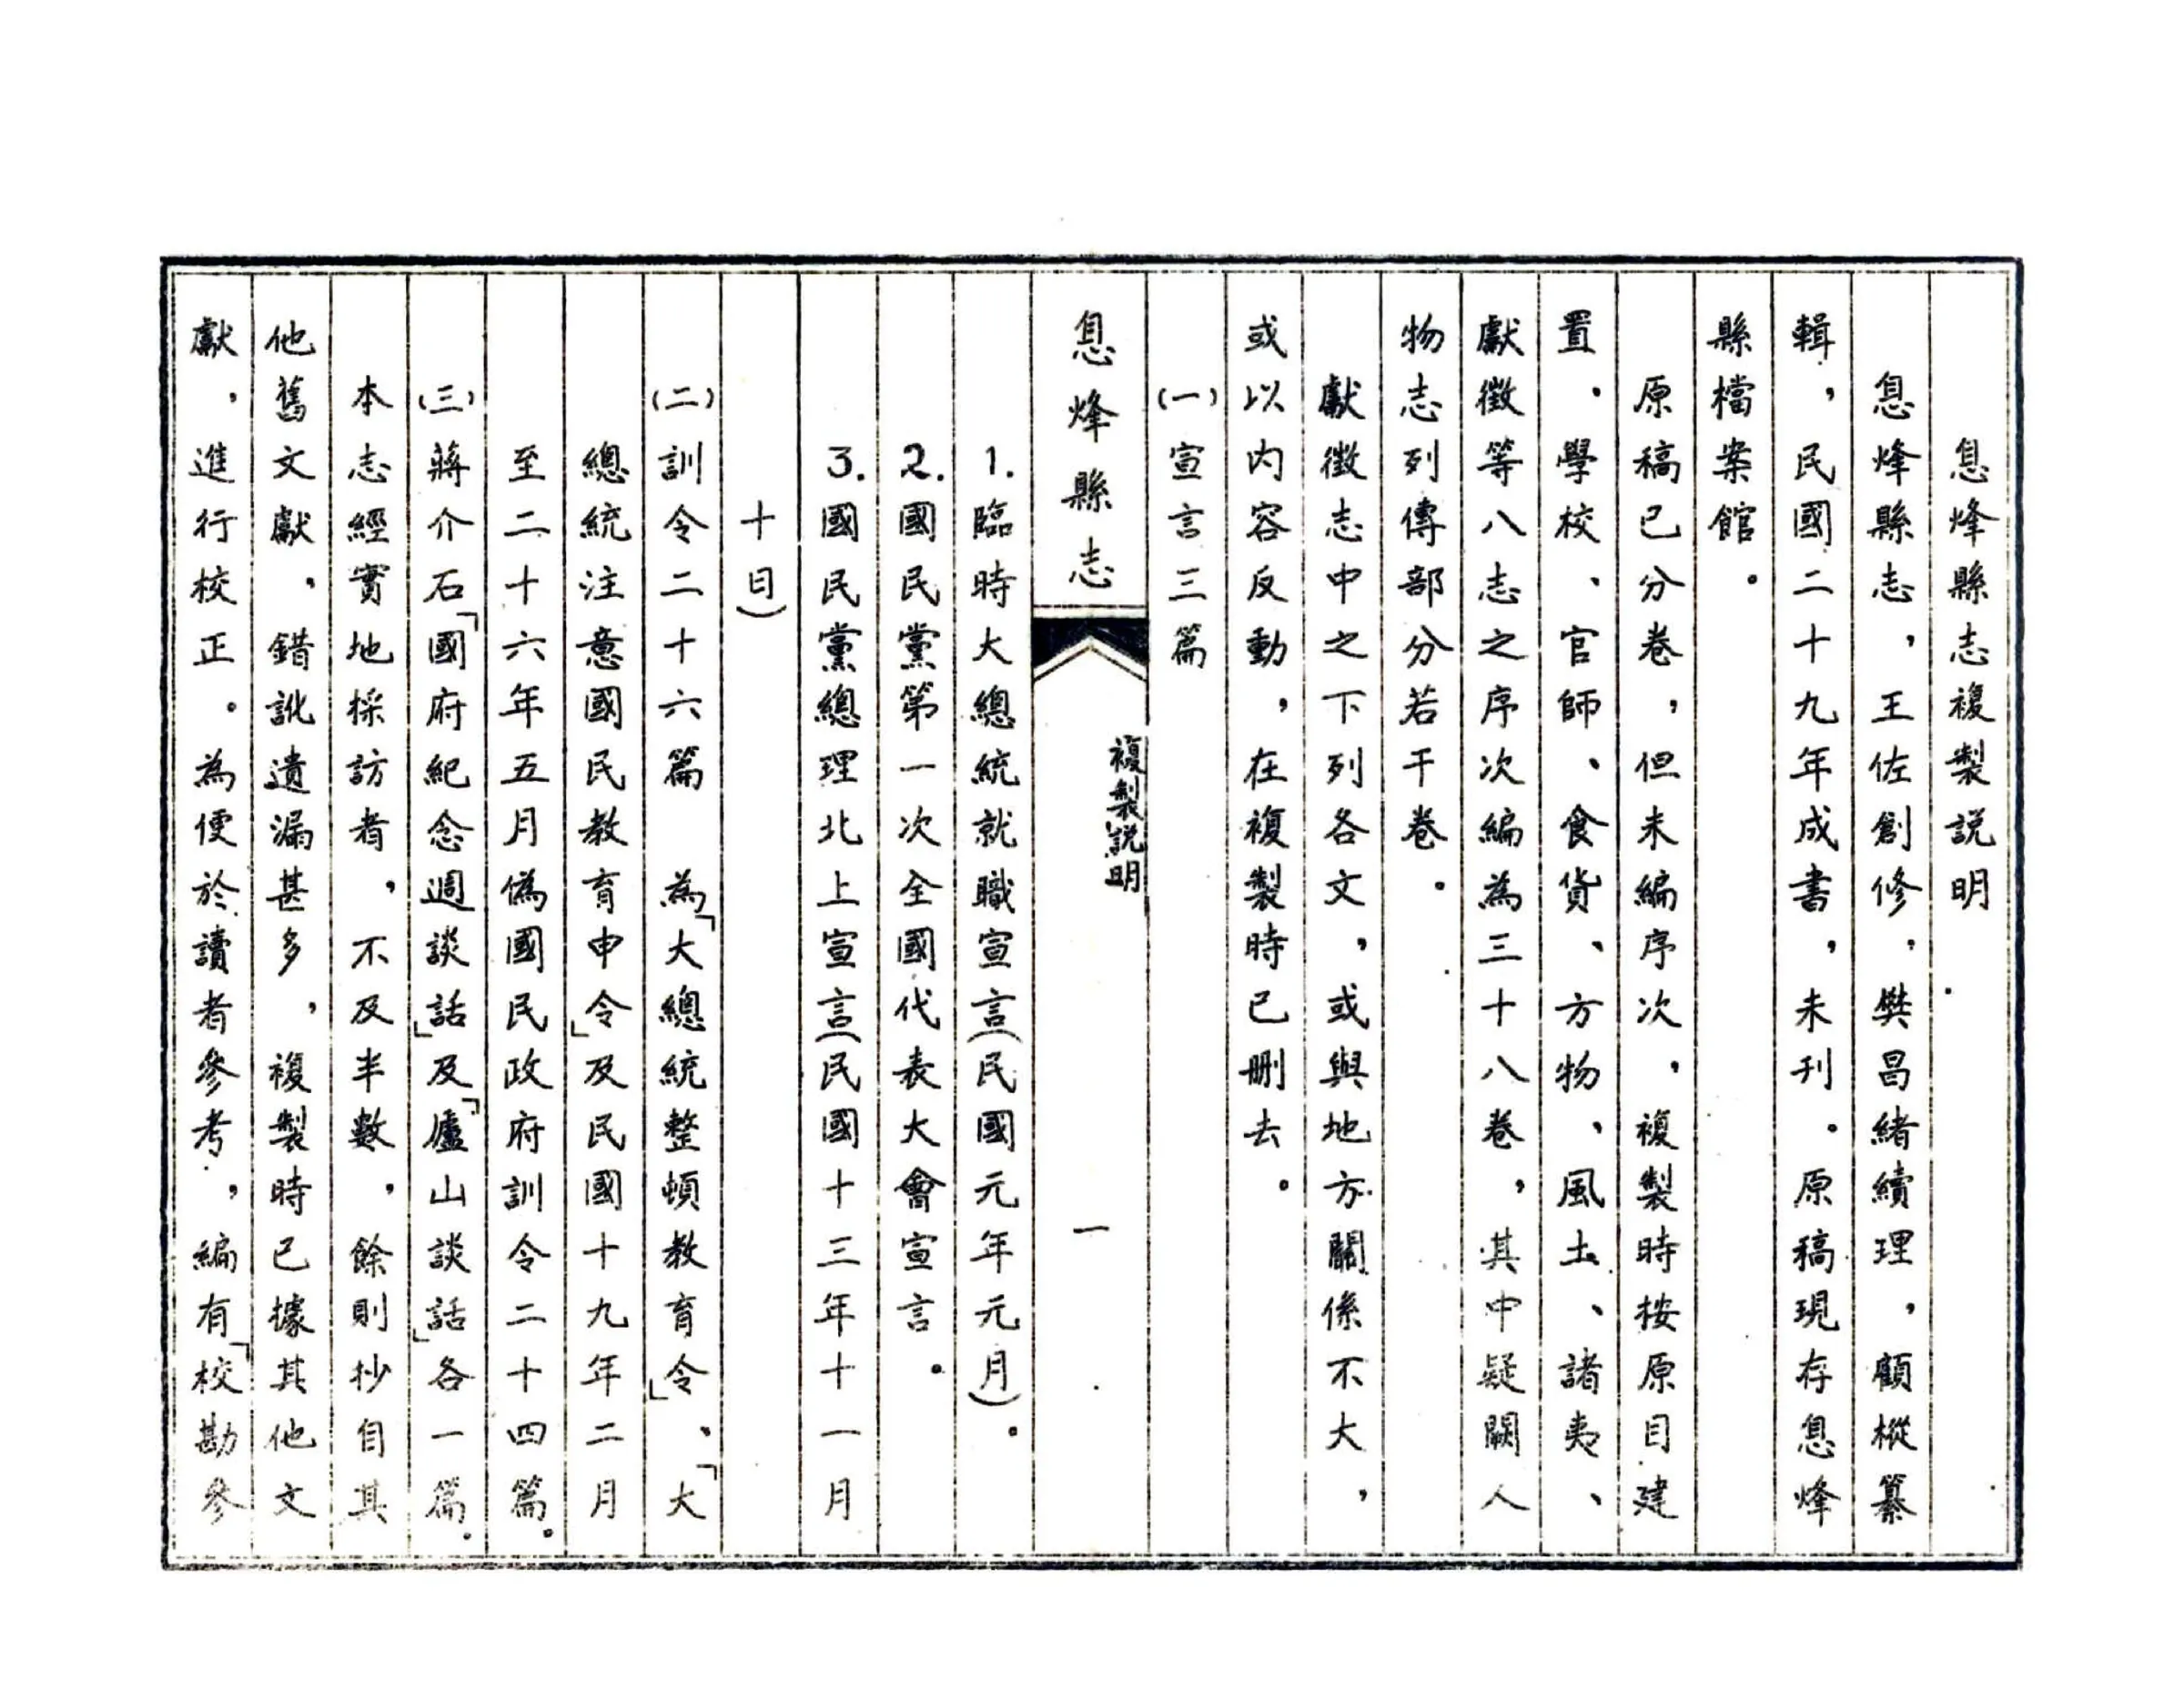 息烽縣志複製説明
息烽縣志，王佐創修，樊昌緒續理，顧樅纂
輯，民國二十九年成書，未刊。原稿現存息烽
縣檔案館。
原稿已分卷，但未編序次，複製時按原目建
置、學校、官師、食貨、方物、風土、諸夷、
獻徵等八志之序次編為三十八卷，其中疑闕人
物志列傳部分若干卷。
獻徵志中之下列各文，或與地方關係不大，
或以内容反動，在複製時已删去。
(一)宣言三篇
息烽縣志
複製説明
一
1.臨時大總統就職宣言(民國元年元月)。
2.國民黨第一次全國代表大會宣言。
3.國民黨總理北上宣言(民國十三年十一月
十日)
(二)訓令二十六篇 為「大總統整頓教育令」、「大
總統注意國民教育申令」及民國十九年二月
至二十六年五月偽國民政府訓令二十四篇。
(三)蔣介石「國府紀念週談話」及「廬山談話」各一篇.
本志經實地採訪者，不及半數，餘則抄自其
他舊文獻，錯訛遺漏甚多，複製時已據其他文
獻，進行校正。為便於讀者參考，編有「校勘參